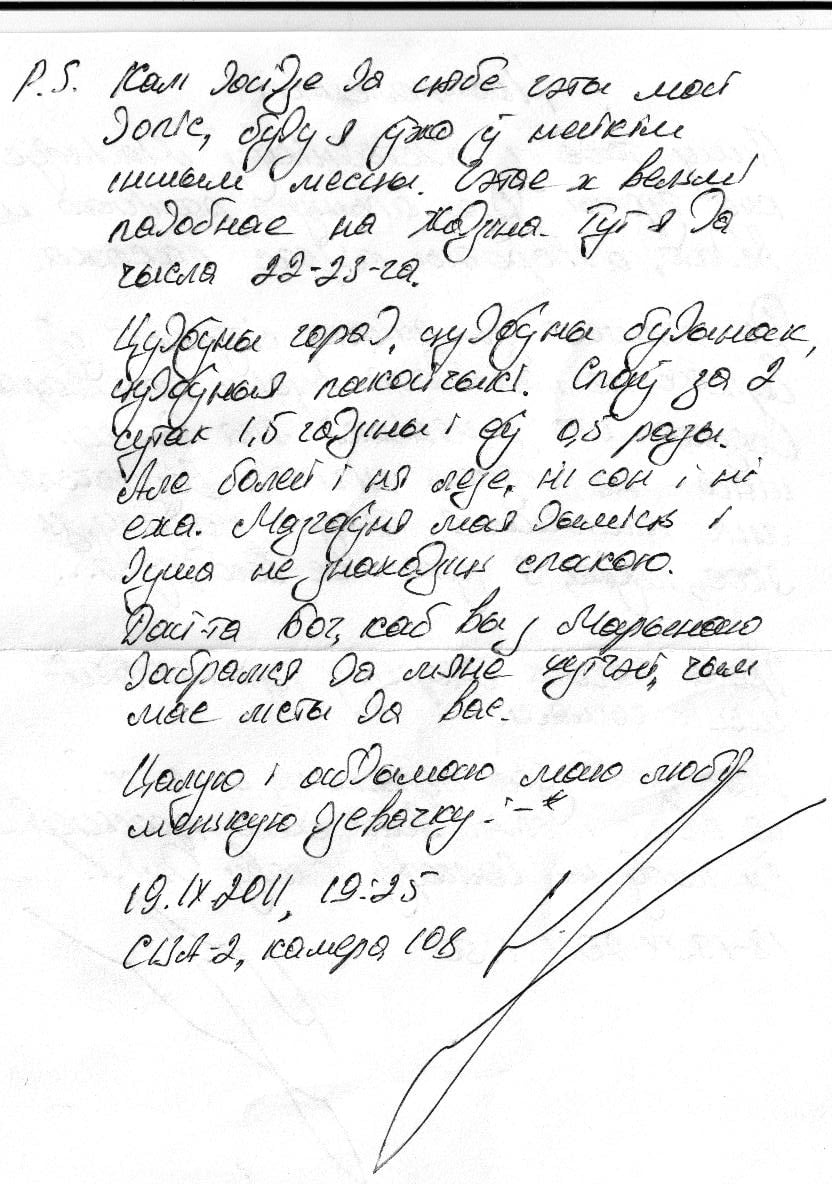 P.S. Калі дойдзе да цябе гэты мой
допіс, буду я ўжо ў нейкім
іншым месцы. Гэтае ж вельмі
падобнае на Жодзіна. Тут я да
чысла 22-23-га.
Цудоўны горад, цудоўны будынак,
цудоўныя пакойчыкі. Спаў за 2
сутак 1,5 гадзіны і еў 0,5 разы.
Але болей і ня лезе, ні сон і ні
ежа. Мазгаўня мая дыміць і
душа не знаходзіць спакою.
Дай-та Бог, каб вы з Марыйкаю
дабраліся да мяне хутчэй, чым
мае лісты да вас.
Цалую і абдымаю маю любі-
менькую дзевачку :-*
19.IX.2011, 19:25
СИЗА-2, камера 108